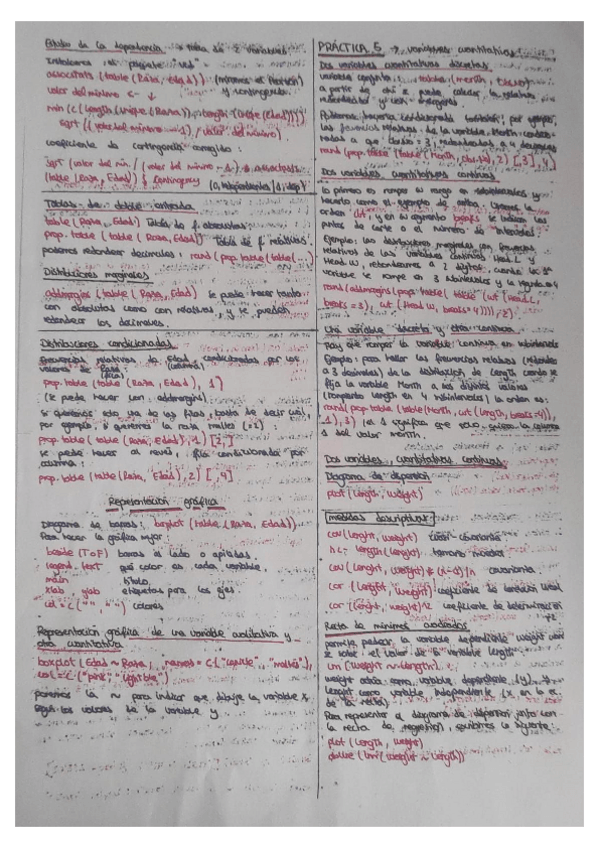 Estudio de la dependencia → tabla de 2 variables
Instalamos el paquete "vcd"
assocstats (table (Raza, Edad)) (miramos el Pearson)
valor del mínimo <- y contingencia.
min (c (length (unique (Raza)), length (unique (Edad))))
sqrt ((valor del mínimo - 1) / valor del mínimo)
coeficiente de contingencia corregido:
sqrt (valor del min / (valor del mínimo - 1)) * assocstats
(table (Raza, Edad)) $ contingency (0, independientes, 1, dep)
Tablas de doble entrada
table (Raza, Edad) Tabla de f. absolutas
prop.table (table (Raza, Edad)) Tabla de f. relativas
podemos redondear decimales: round (prop.table (table (...)
Distribuciones marginales
addmargins (table (Raza, Edad)) se puede hacer tanto
con absolutas como con relativas, y se pueden
redondear los decimales.
Distribuciones condicionadas
frecuencias relativas de Edad condicionadas por los
valores de Raza: (columna)
(fila)
prop.table (table (Raza, Edad), 1)
(se puede hacer con addmargins)
Si queremos solo una de las filas, basta de decir cuál,
por ejemplo, si queremos la raza
prop.table (table (Raza, Edad), 1) [2,]
se puede hacer al revés, fila condicionada por
columna:
prop.table (table (Raza, Edad), 2) [,4]
Representación gráfica
Diagrama de barras: barplot (table (Raza, Edad))
Para hacer la gráfica mejor:
beside (T o F) barras al lado o apiladas
legend.text qué color es cada variable.
main título
xlab, ylab etiquetas para los ejes
col = c ("", "") colores
Representación gráfica de una variable cualitativa y
otra cuantitativa
boxplot (Edad ~ Raza, names = c (
col = c ("pink", "lightblue")
ponemos la ~ para indicar que dibuje la variable x
según los valores de la variable y
PRÁCTICA 5 → variables cuantitativas
Dos variables cuantitativas discretas
variable conjunta: table (month,
a partir de ahí se puede calcular la relativa
redondeada y con márgenes
Podemos hacerla condicionada también, por ejemplo,
las frecuencias relativas de la variable Month condicio-
nadas a que = 3, redondeadas a 4 decimales
round (prop.table (table (Month, ), 2) [,3], 4)
Dos variables cuantitativas continuas
lo primero es romper su rango en subintervalos y
hacerlo como el ejemplo de antes. Usamos la
orden cut y en su argumento breaks se indican los
puntos de corte o el número de intervalos
Ejemplo: las distribuciones marginales con frecuencias
relativas de las variables continuas Head.L y
Head.W, redondearemos a 2 dígitos, cuando la 1ª
variable se rompe en 3 subintervalos y la segunda en 4
round (addmargins (prop.table (table (cut (Head.L,
breaks = 3), cut (Head.W, breaks = 4)))), 2)
Una variable discreta y otra continua
Hay que romper la variable continua en subintervalos
Ejemplo: para hallar las frecuencias relativas (redondeo
a 3 decimales) de la distribución de Length cuando se
fija la variable Month a sus distintos valores
(rompiendo Length en 4 subintervalos) la orden es:
round (prop.table (table (Month, cut (Length, breaks = 4)),
1), 3) (el 1 significa que
1 del valor month.
Dos variables cuantitativas continuas
Diagrama de dispersión
plot (Length, Weight)
Medidas descriptivas:
cov (Length, Weight) cuasi covarianza
n <- length (Length) tamaño muestral
cov (Length, Weight) * (n-1)/n covarianza
cor (Length, Weight) coeficiente de correlación lineal
cor (Length, Weight)^2 coeficiente de determinación
r^2
Recta de mínimos cuadrados
permite predecir la variable dependiente Weight con
el valor de la variable Length
lm (Weight ~ Length)
Weight actúa como variable dependiente (y) y
Length como variable independiente (x en la ec
de la recta)
Para representar el diagrama de dispersión junto con
la recta de regresión, escribimos lo siguiente
plot (Length, Weight)
abline (lm (Weight ~ Length))